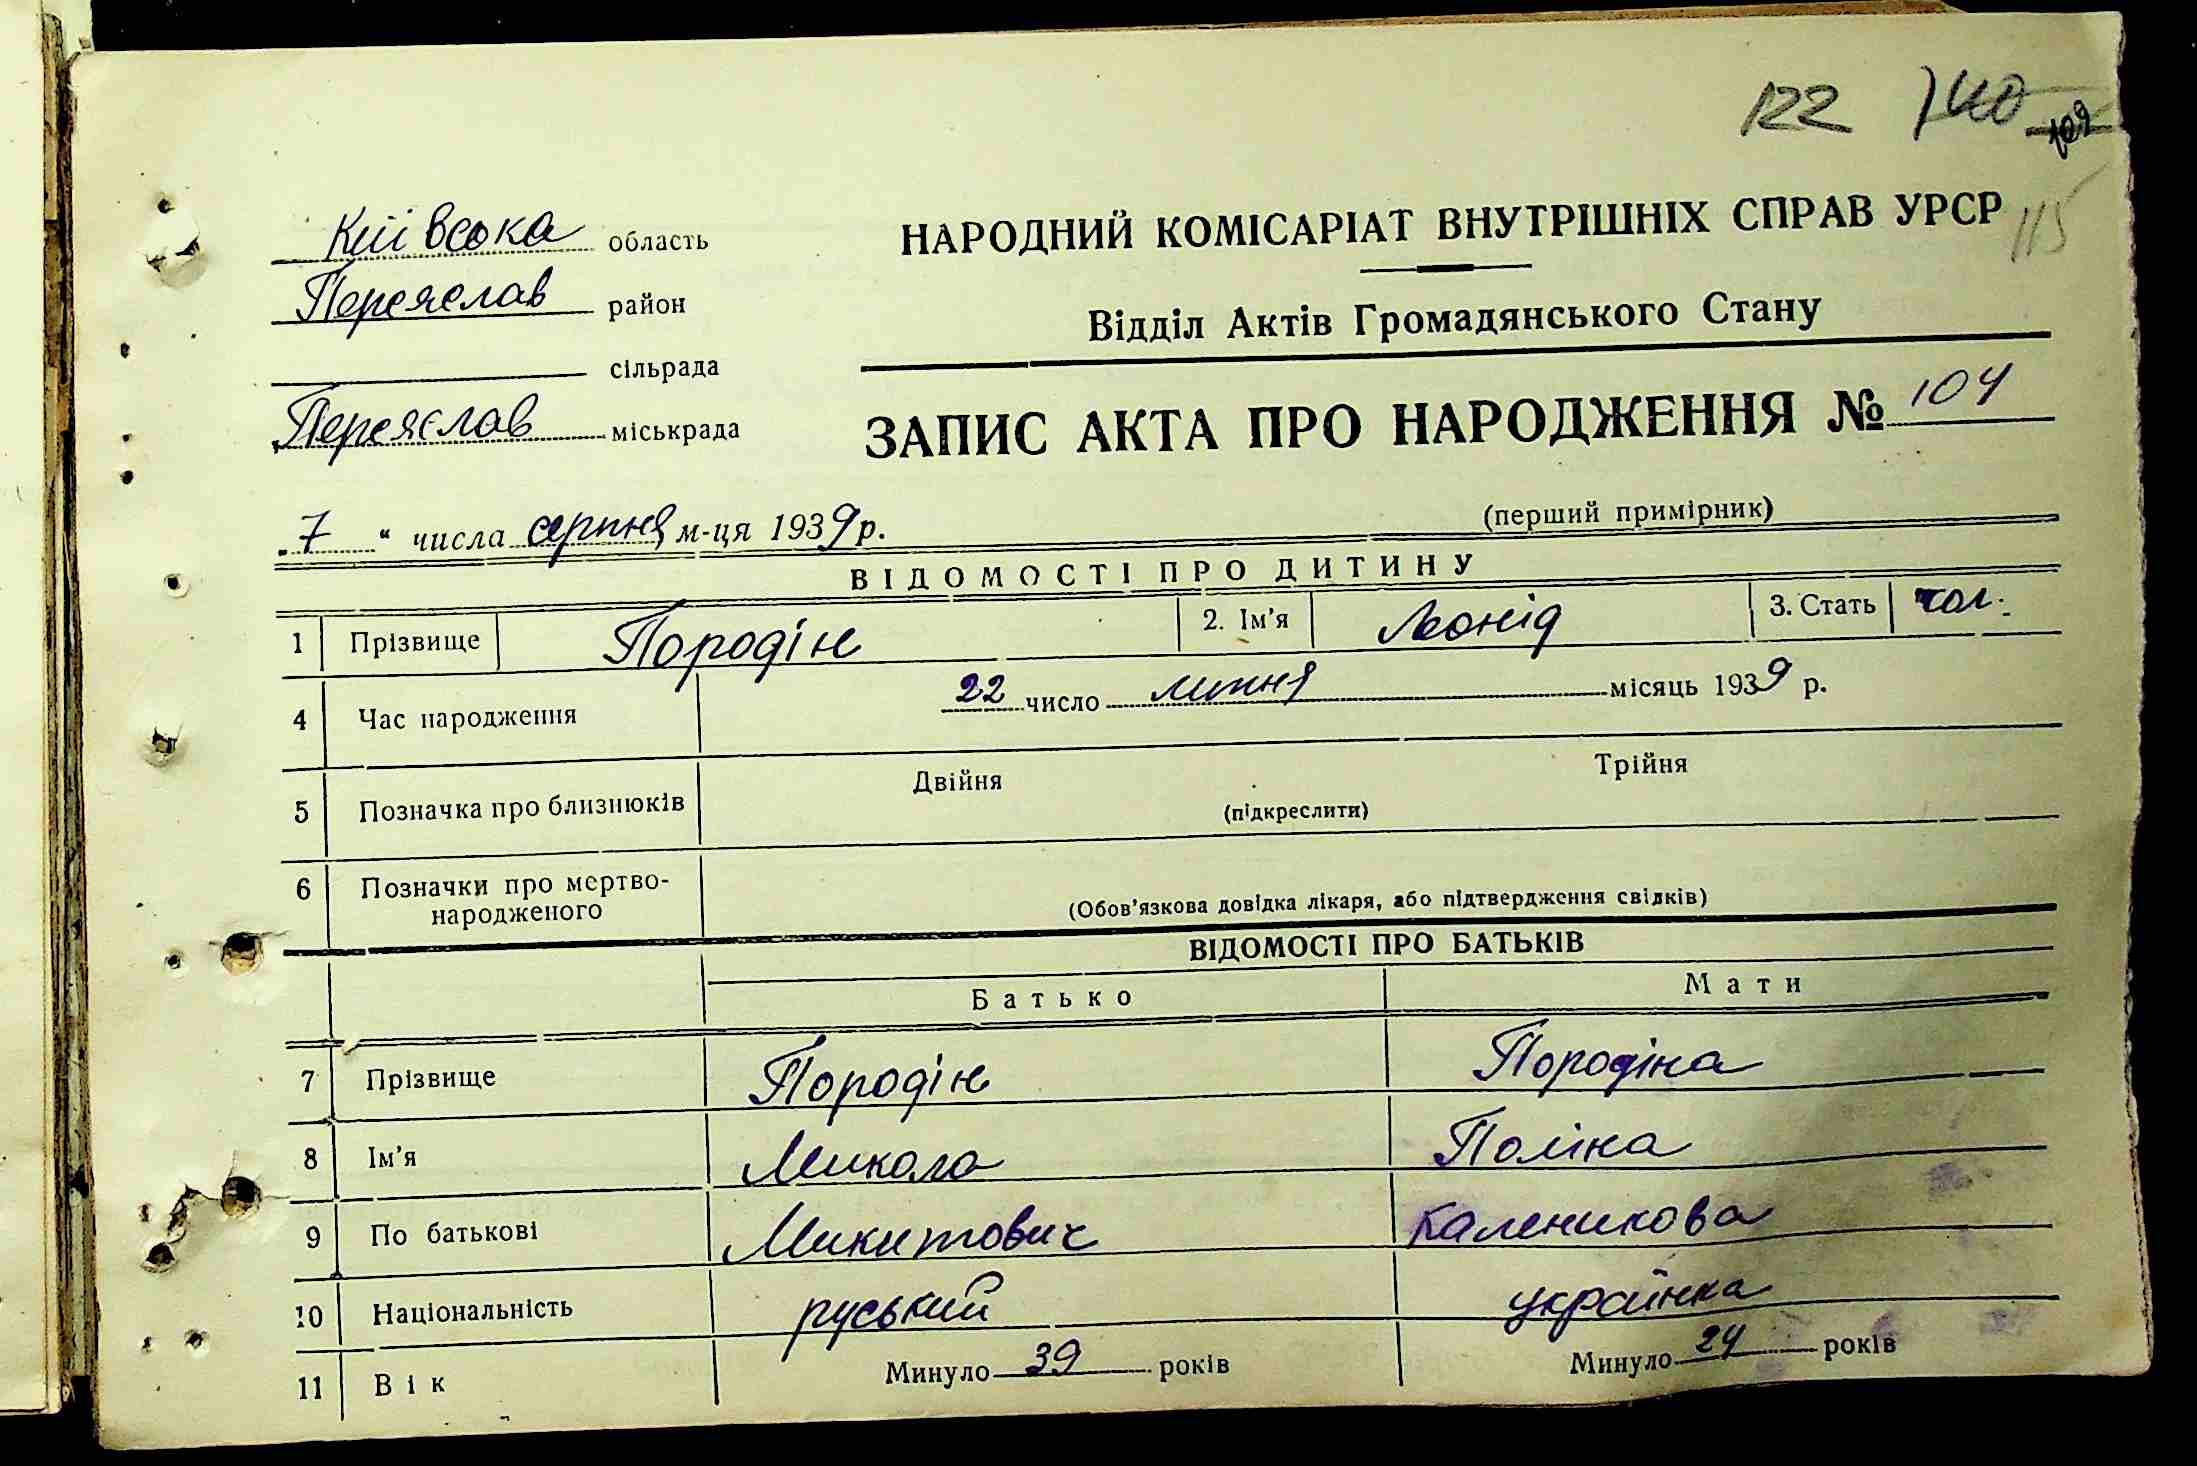 122 140 109
Київська область
НАРОДНИЙ КОМІСАРІАТ ВНУТРІШНІХ СПРАВ УРСР 115
Переяслав район
Відділ Актів Громадянського Стану
сільрада
Переяслав міськрада
ЗАПИС АКТА ПРО НАРОДЖЕННЯ № 104
„7“ числа серпня м-ця 1939 р.
(перший примірник)
ВІДОМОСТІ ПРО ДИТИНУ
1 Прізвище Породін 2. Ім'я Леонід 3. Стать чол.
4 Час народження 22 число липня місяць 1939 р.
5 Позначка про близнюків Двійня (підкреслити) Трійня
6 Позначки про мертво-
народженого (Обов'язкова довідка лікаря, або підтвердження свідків)
ВІДОМОСТІ ПРО БАТЬКІВ
Батько Мати
7 Прізвище Породін Породіна
8 Ім'я Микола Поліна
9 По батькові Микитович Каленикова
10 Національність руський українка
11 Вік Минуло 39 років Минуло 24 років